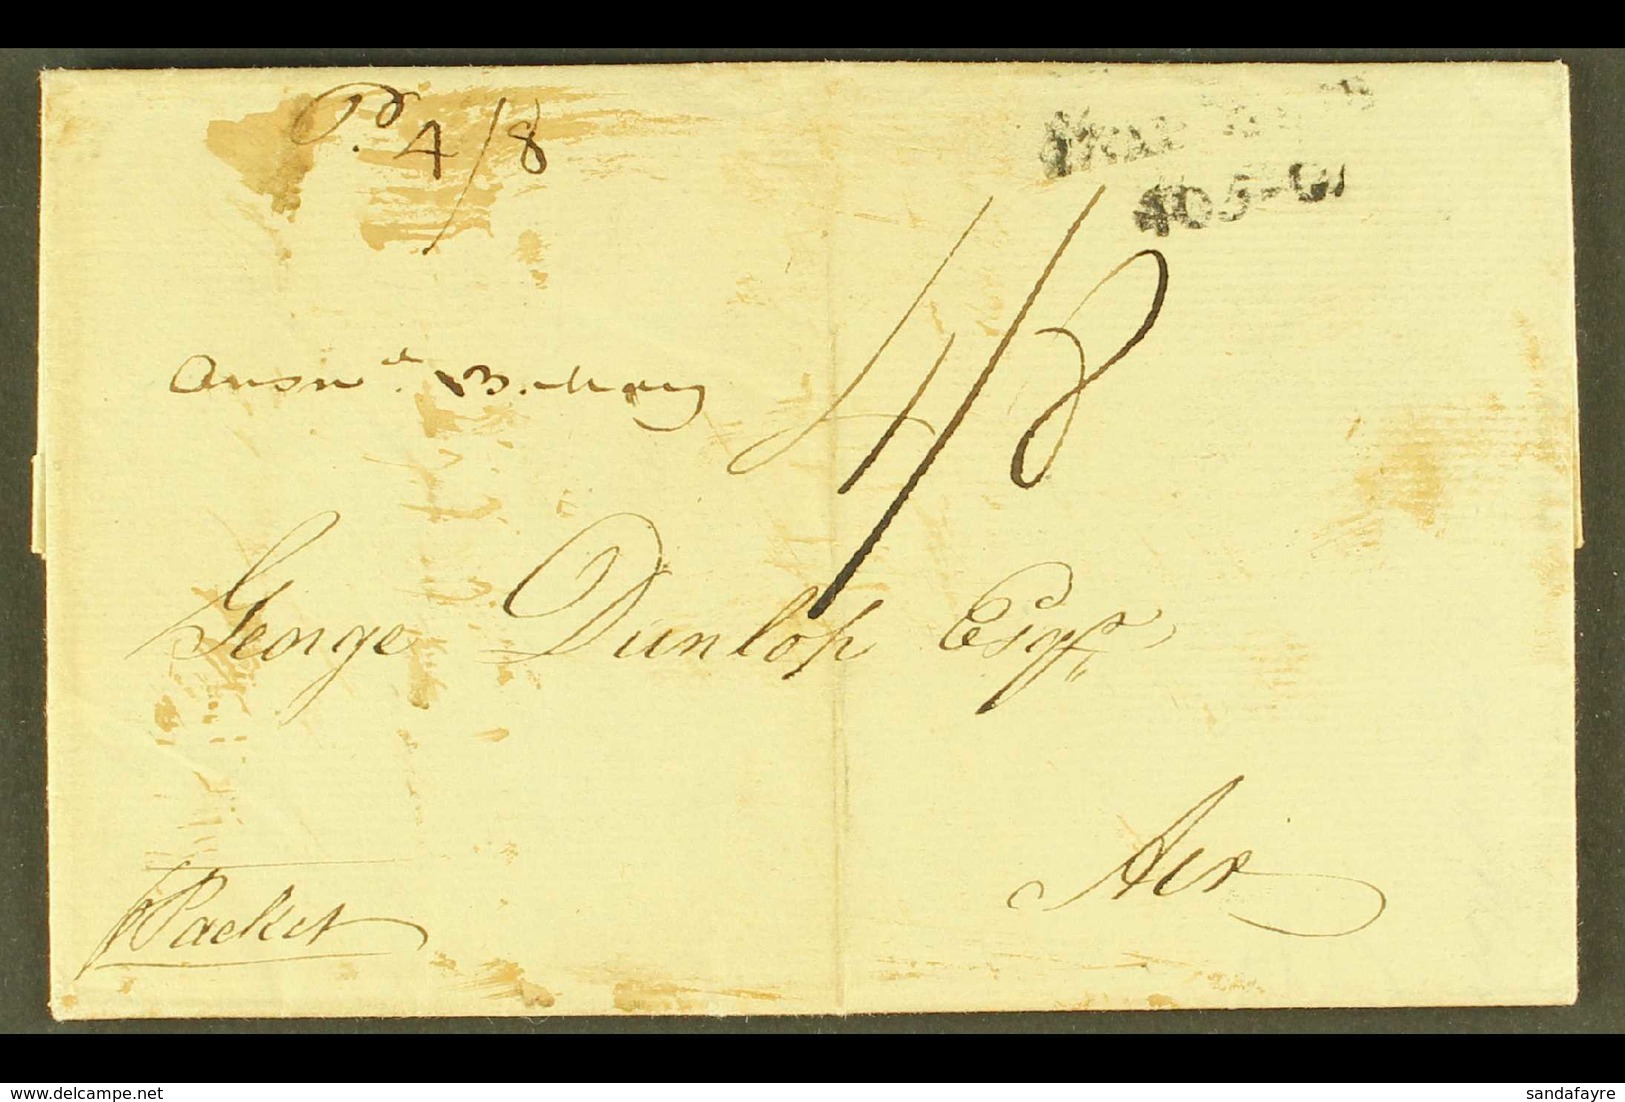 Pd. 4/8
405-O/
4/8
Answd. 13. May
George Dunlop Esqr.
Air
p Packet
© delcampe.net
sandafayre